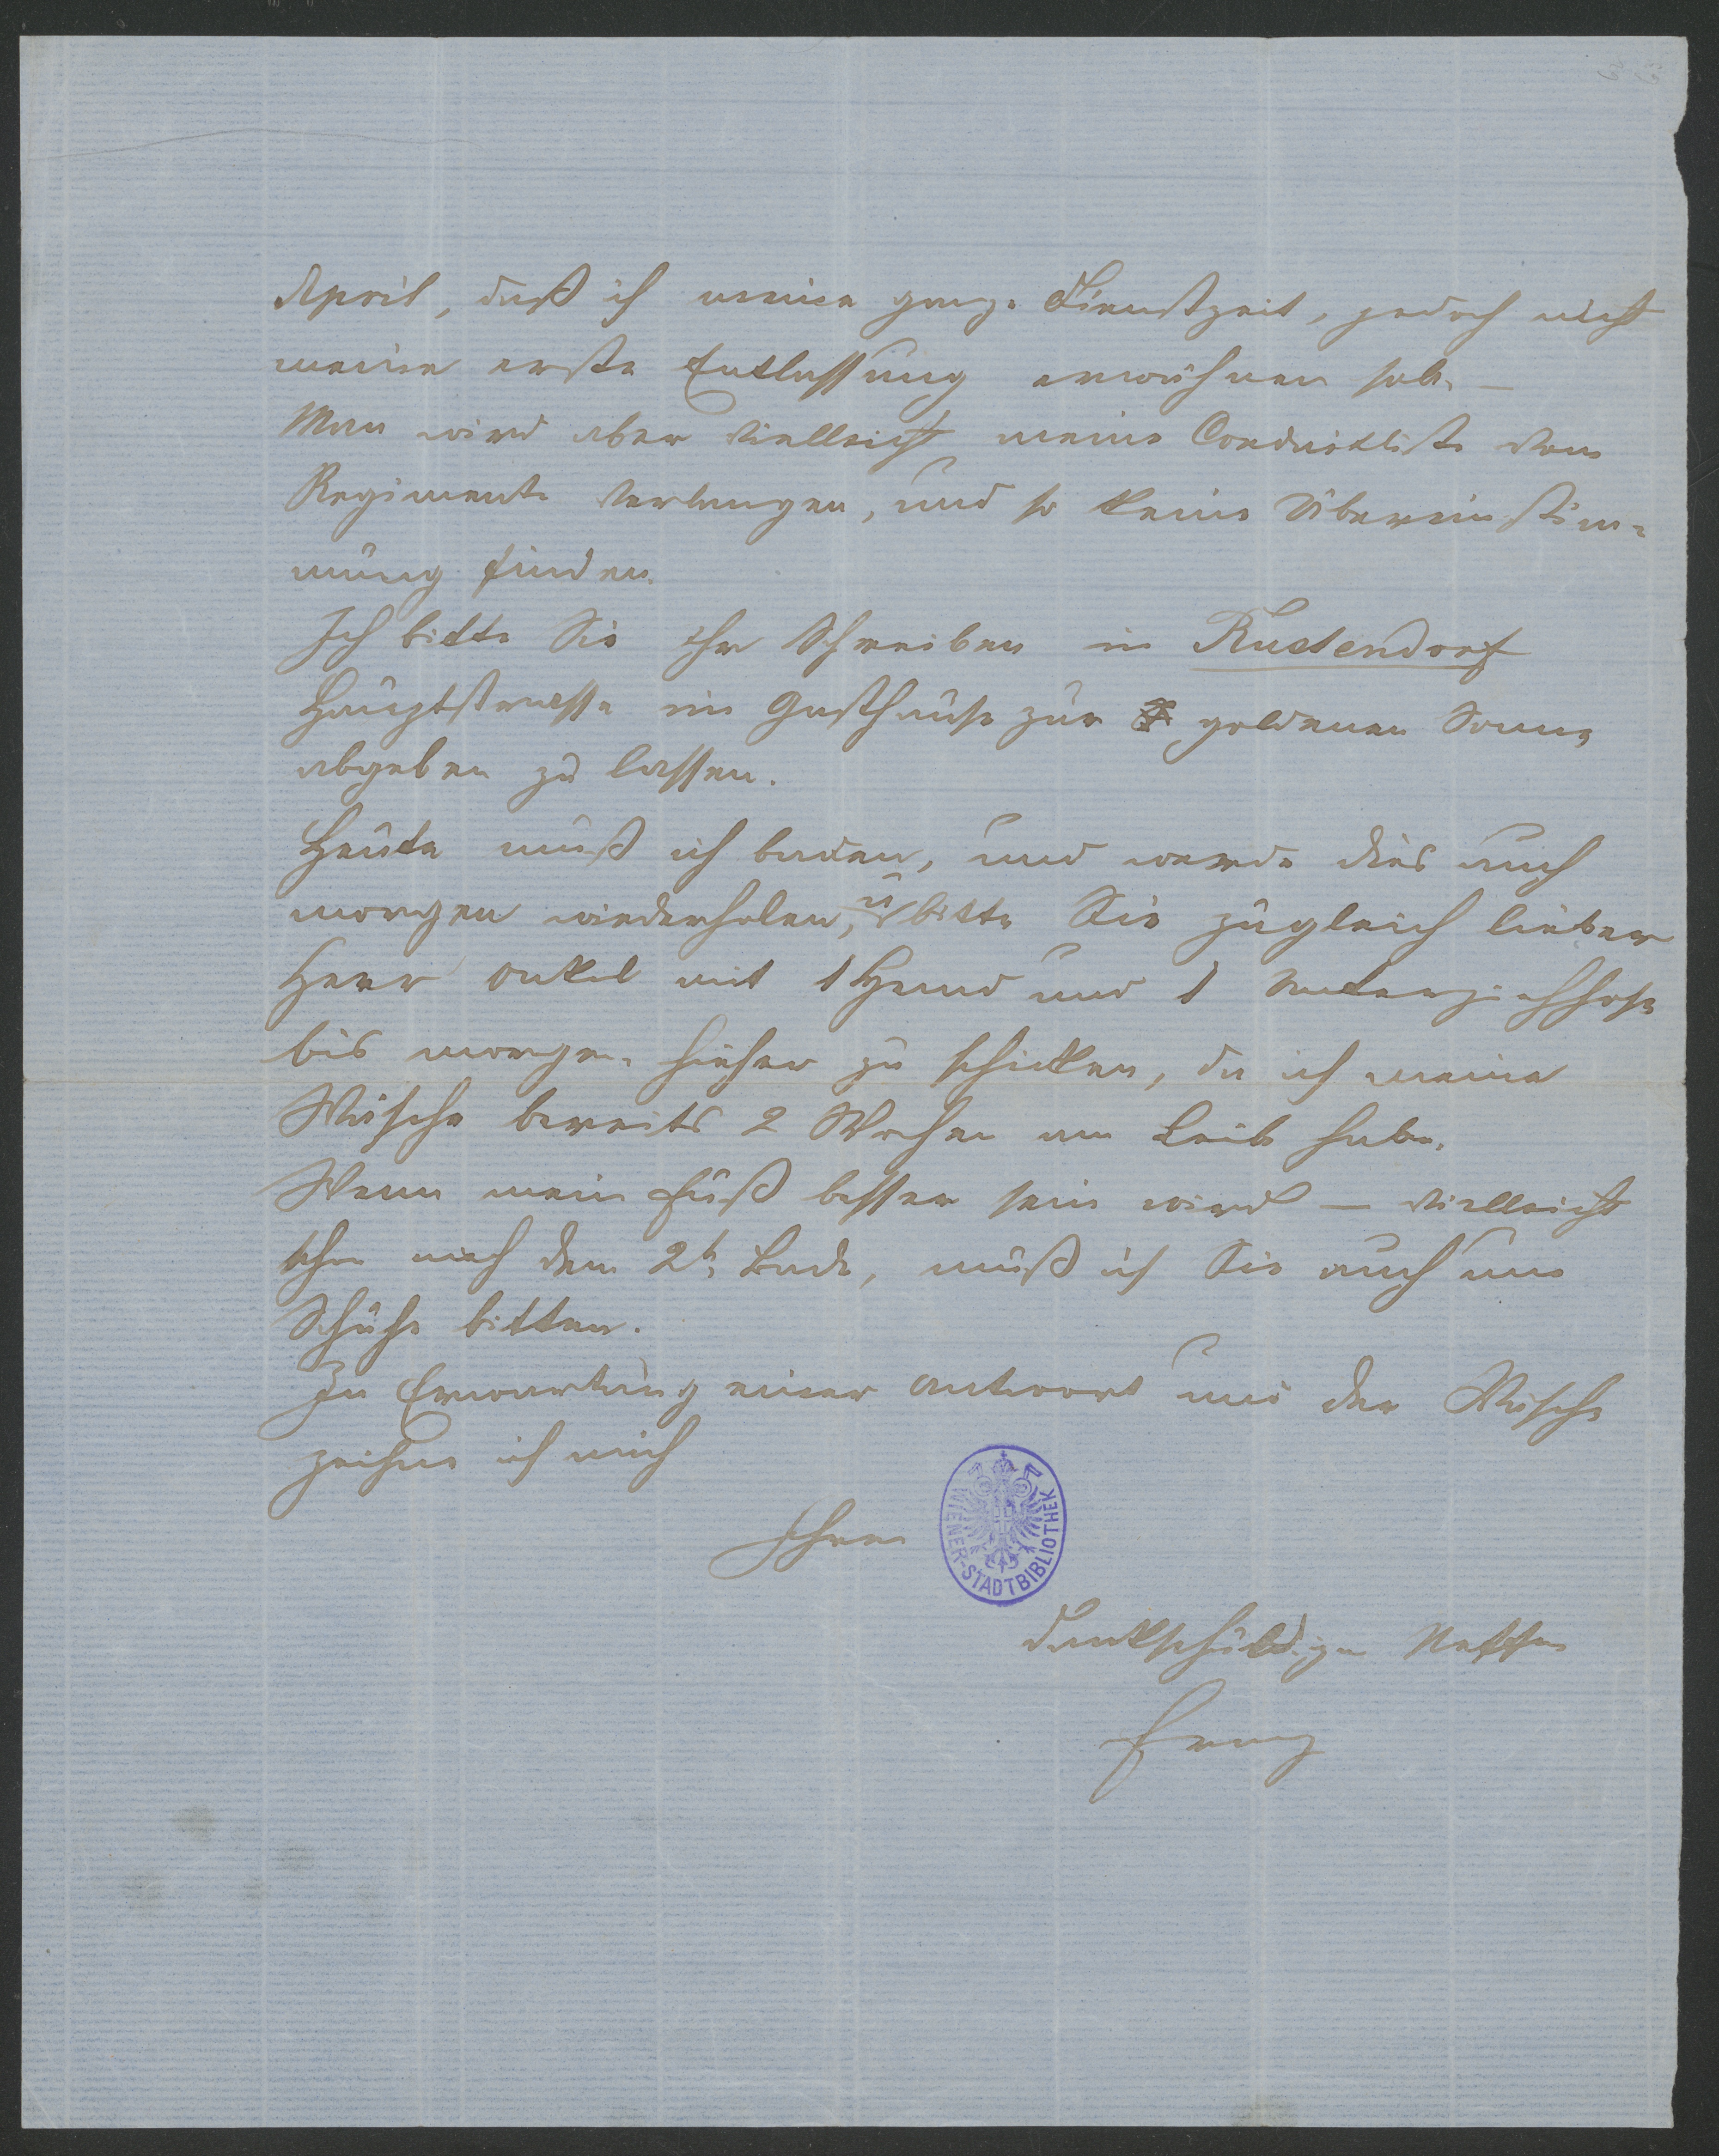 April, daß ich meine ganze Dienstzeit, jedoch nicht
meine erste Entlassung erwähnen sole. —
Man wird aber vielleicht meine Conduitliste vom
Regimente verlangen, und so keine Übereinstim=
mung finden.
Ich bitte Sie Ihr Schreiben in Rustendorf
Hauptstrasse im Gasthause zur goldenen Sonne
abgeben zu lassen.
Heute muß ich baden, und werde dies auch
morgen wiederholen, u bitte Sie zugleich lieber
Herr Onkel mit 1 Hemd und 1 Unterziehhose
bis morgen hieher zu schicken, da ich meine
Wäsche bereits 2 Wochen am Leib habe.
Wenn mein Fuß besser sein wird — vielleicht
schon nach dem 2t. Bade, muß ich Sie auch um
Schuhe bitten.
In Erwartung einer Antwort und der Wäsche
zeichne ich mich
Ihren
WIENER-STADTBIBLIOTHEK
dankschuldigen Neffen
Franz